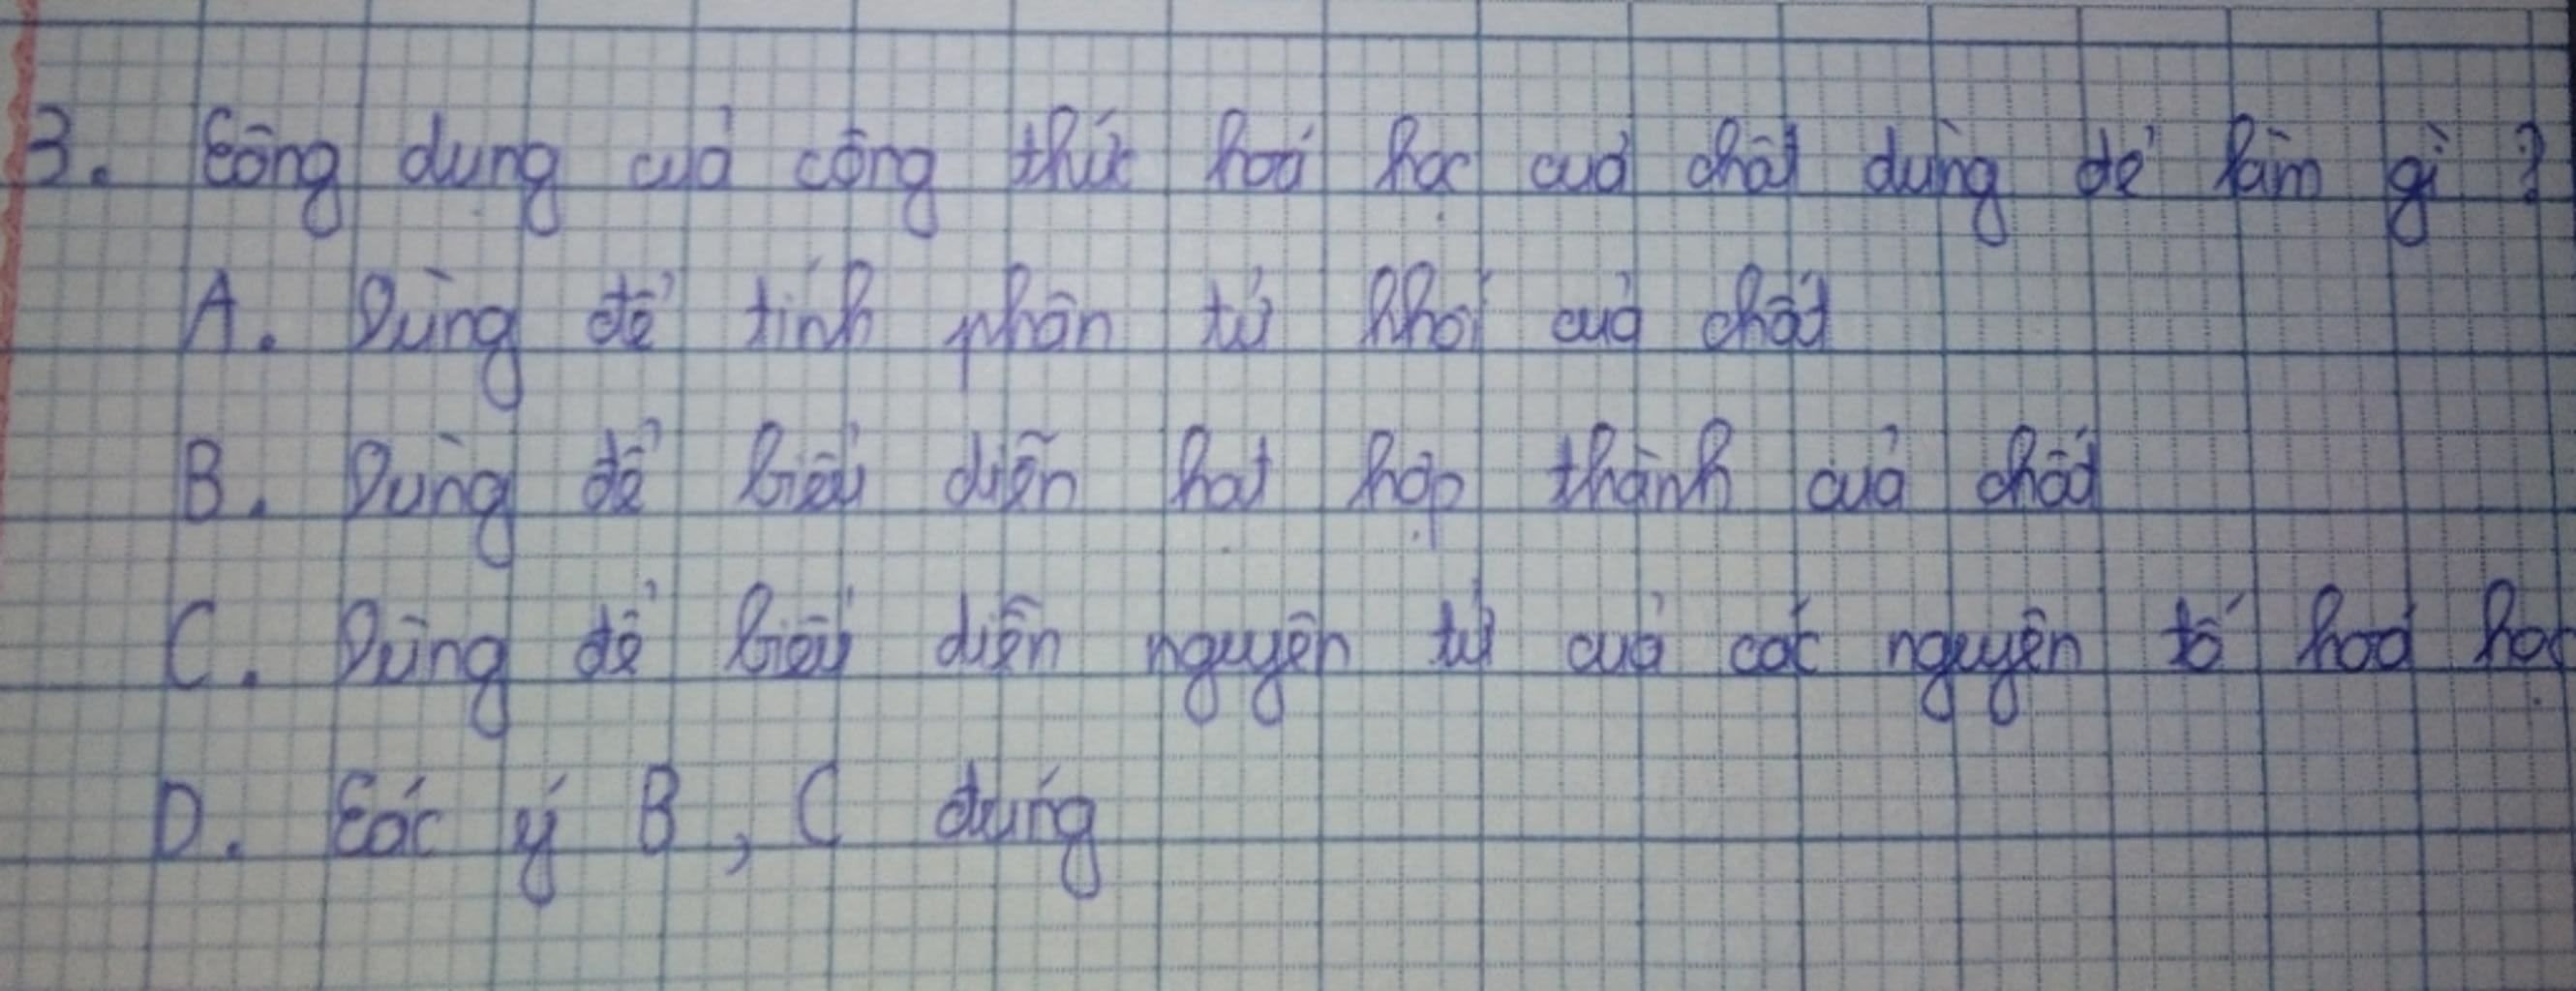 3. Công dụng của công thức hoá học của chất dùng để làm gì ?
A. Dùng để tính phân tử khối của chất
B. Dùng để biểu diễn hạt hợp thành của chất
C. Dùng để biểu diễn nguyên tử của các nguyên tố hoá học
D. Các ý B, C đúng